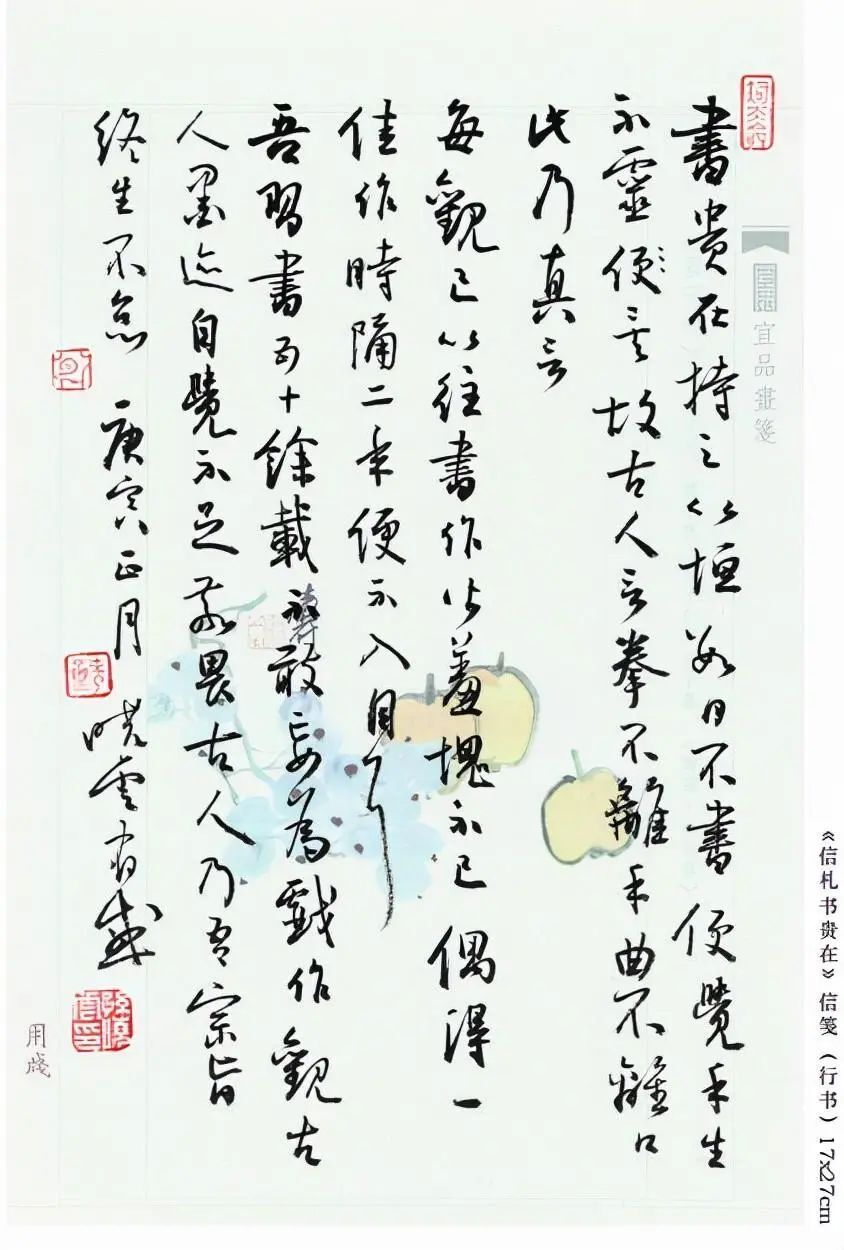 宜品畫箋
書貴在持之以恒數日不書便覺手生
不靈便矣故古人言拳不離手曲不離口
此乃真言
每觀己以往書作皆羞愧不已偶得一
佳作時隔二年便不入目了
吾習書五十餘載不敢妄為戲作觀古
人墨迹自覺不足敬畏古人乃吾宗旨
終生不怠 庚寅正月 曉雲有感
用箋
《信札书贵在》信笺(行书)17×27cm